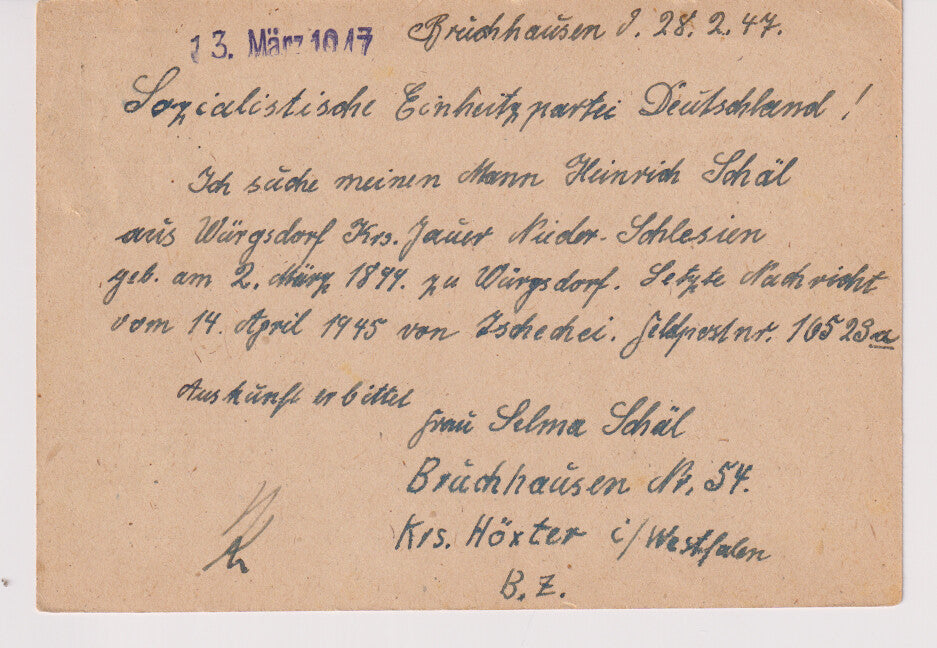 13. März 1947
Bruchhausen d. 28. 2. 47.
Sozialistische Einheitzpartei Deutschland!
Ich suche meinen Mann Heinrich Schäl
aus Würgsdorf Krs. Jauer Nieder-Schlesien
geb. am 2. März 1899. zu Würgsdorf. Letzte Nachricht
vom 14. April 1945 von Tschechei. Feldpostnr. 16523a
Auskunft erbittet
Frau Selma Schäl
Bruchhausen Nr. 54.
Krs. Höxter i/Westfalen
B. Z.